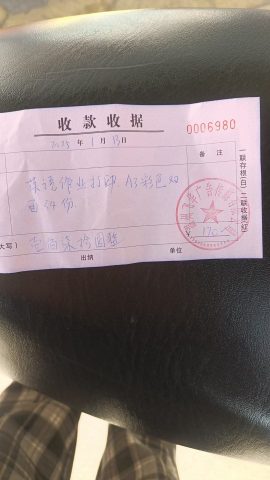 收款收据
0006980
2025年1月13日
备注
作业打印 A3彩色双
面54份
大写）
壹佰柒拾圆整
170
出纳
单位
一联存根（白）二联收据（红）